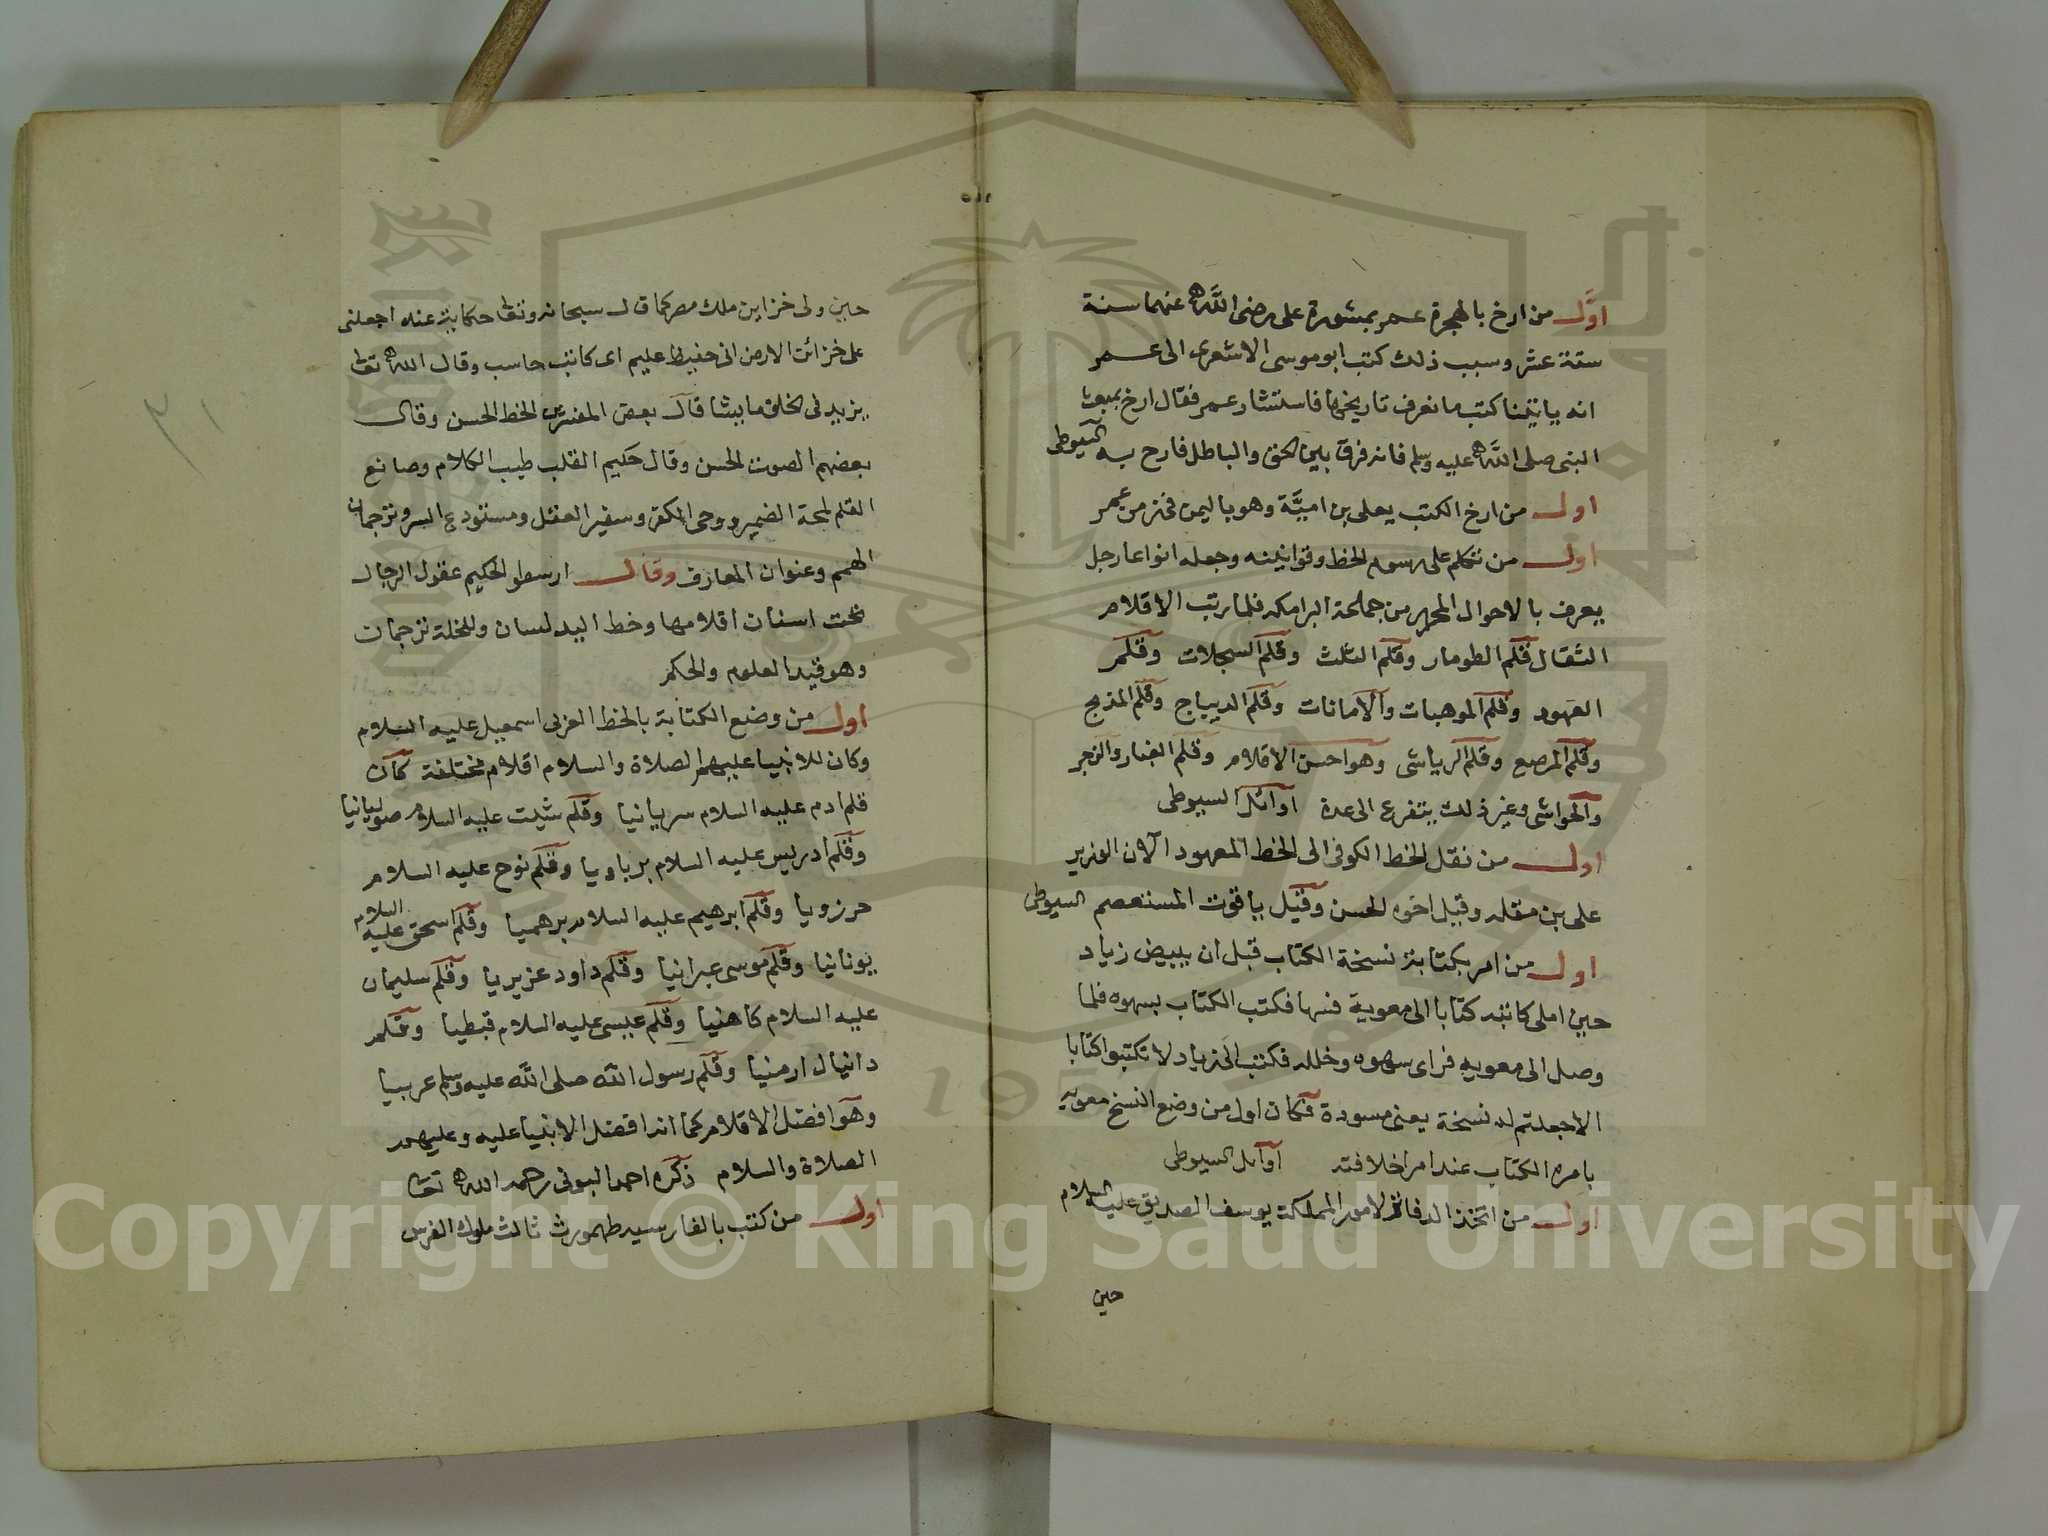 اول من ارخ بالهجرة عمر بمشورة على رضى الله عنهما سنة
ستة عشر وسبب ذلك كتب ابو موسى الاشعرى الى عمر
انه ياتينا كتب ما نعرف تاريخها فاستشار عمر فقال ارخ بمبعث
النبى صلى الله عليه وسلم فانه فرق بين الحق والباطل فارخ به السيوطى
اول من ارخ الكتب يعلى بن امية وهو باليمن فى زمن عمر
اول من تكلم على رسوم الخط وقوانينه وجعله انواعا رجل
يعرف بالاحوال المحرر من جملة البرامكه فلما رتب الاقلام
الثقال فقلم الطومار وقلم الثلث وقلم السجلات وقلم
العهود وقلم الموهبات والامانات وقلم الديباج وقلم المذبج
وقلم المرصع وقلم الرياشى وهو احسن الاقلام وقلم الغبار والزجر
والحواشى وغير ذلك يتفرع الى عدة اوائل السيوطى
اول من نقل الخط الكوفى الى الخط المعهود الان الوزير
على بن مقله وقيل اخوه الحسن وقيل ياقوت المستعصم السيوطى
اول من امر بكتابة نسخة الكتاب قبل ان يبيض زياد
حين املى كاتبه كتابا الى معوية فسها فكتب الكتاب بسهوه فلما
وصل الى معويه فراى سهوه وخلله فكتب الى زياد لا تكتبوا كتابا
الا جعلتم له نسخة يعنى مسودة فكان اول من وضع النسخ معويه
بامره الكتاب عند امر اخلافته اوائل السيوطى
اول من اتخذ الدفاتر لامور المملكة يوسف الصديق عليه السلام
حين
حين ولى خزاين ملك مصر كما قال سبحانه وتعا حكاية عنه اجعلنى
على خزائن الارض انى حفيظ عليم اى كاتب حاسب وقال الله تعا
يزيد فى الخلق ما يشا قال بعض المفسرين الخط الحسن وقال
بعضهم الصوت الحسن وقال حكيم القلب طيب الكلام وصانع
القلم لمحة الضمير ووحى الفكر وسفير العقل ومستودع السر وترجمان
الهمم وعنوان المعارف وقال ارسطو الحكيم عقول الرجال
تحت اسنان اقلامها وخط اليد لسان وللخلة ترجمان
وهو قيد العلوم والحكم
اول من وضع الكتابة بالخط العربى اسمعيل عليه السلام
وكان للانبيا عليهم الصلاة والسلام اقلام مختلفة كان
قلم ادم عليه السلام سريانيا وقلم شيث عليه السلام
وقلم ادريس عليه السلام برباويا وقلم نوح عليه السلام
حرزويا وقلم ابرهيم عليه السلام برهميا وقلم اسحق عليه السلام
يونانيا وقلم موسى عبرانيا وقلم داود عزيريا وقلم سليمان
عليه السلام كاهنيا وقلم عيسى عليه السلام قبطيا وقلم
دانيال ارمنيا وقلم رسول الله صلى الله عليه وسلم عربيا
وهو افضل الاقلام كما انه افضل الانبيا عليه وعليهم
الصلاة والسلام ذكره احمد البونى رحمه الله تعا
اول من كتب بالفارسيه طهمورث ثالث ملوك الفرس
Copyright © King Saud University